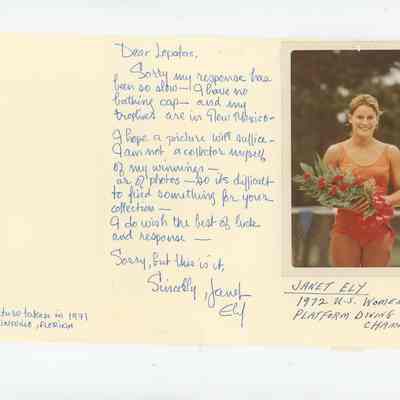 Dear Lopatas,
Sorry my response has
been so slow — I have no
bathing cap — and my
trophies are in New Mexico —
I hope a picture will suffice —
I am not a collector myself
of my winnings —
or of photos — so it's difficult
to find something for your
collection —
I do wish the best of luck
and response —
Sorry, but this is it.
Sincerely, Janet
Ely
taken in 1971
FLORIDA
JANET ELY
1972 U.S. WOMEN
PLATFORM DIVING
CHAM